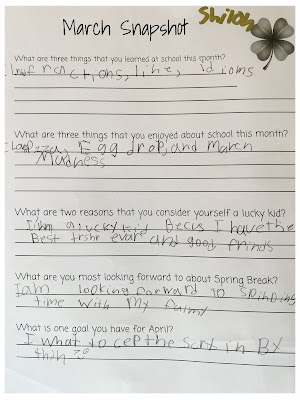 Shiloh
March Snapshot
What are three things that you learned at school this month?
fractions, line, idioms
What are three things that you enjoyed about school this month?
Egg drop, and March
Madness
What are two reasons that you consider yourself a lucky kid?
I am a lucky kid Becus I have the
Best trshr evare and good frinds
What are you most looking forward to about Spring Break?
I am looking forward to spihding
time with my
What is one goal you have for April?
I what to cep the in By